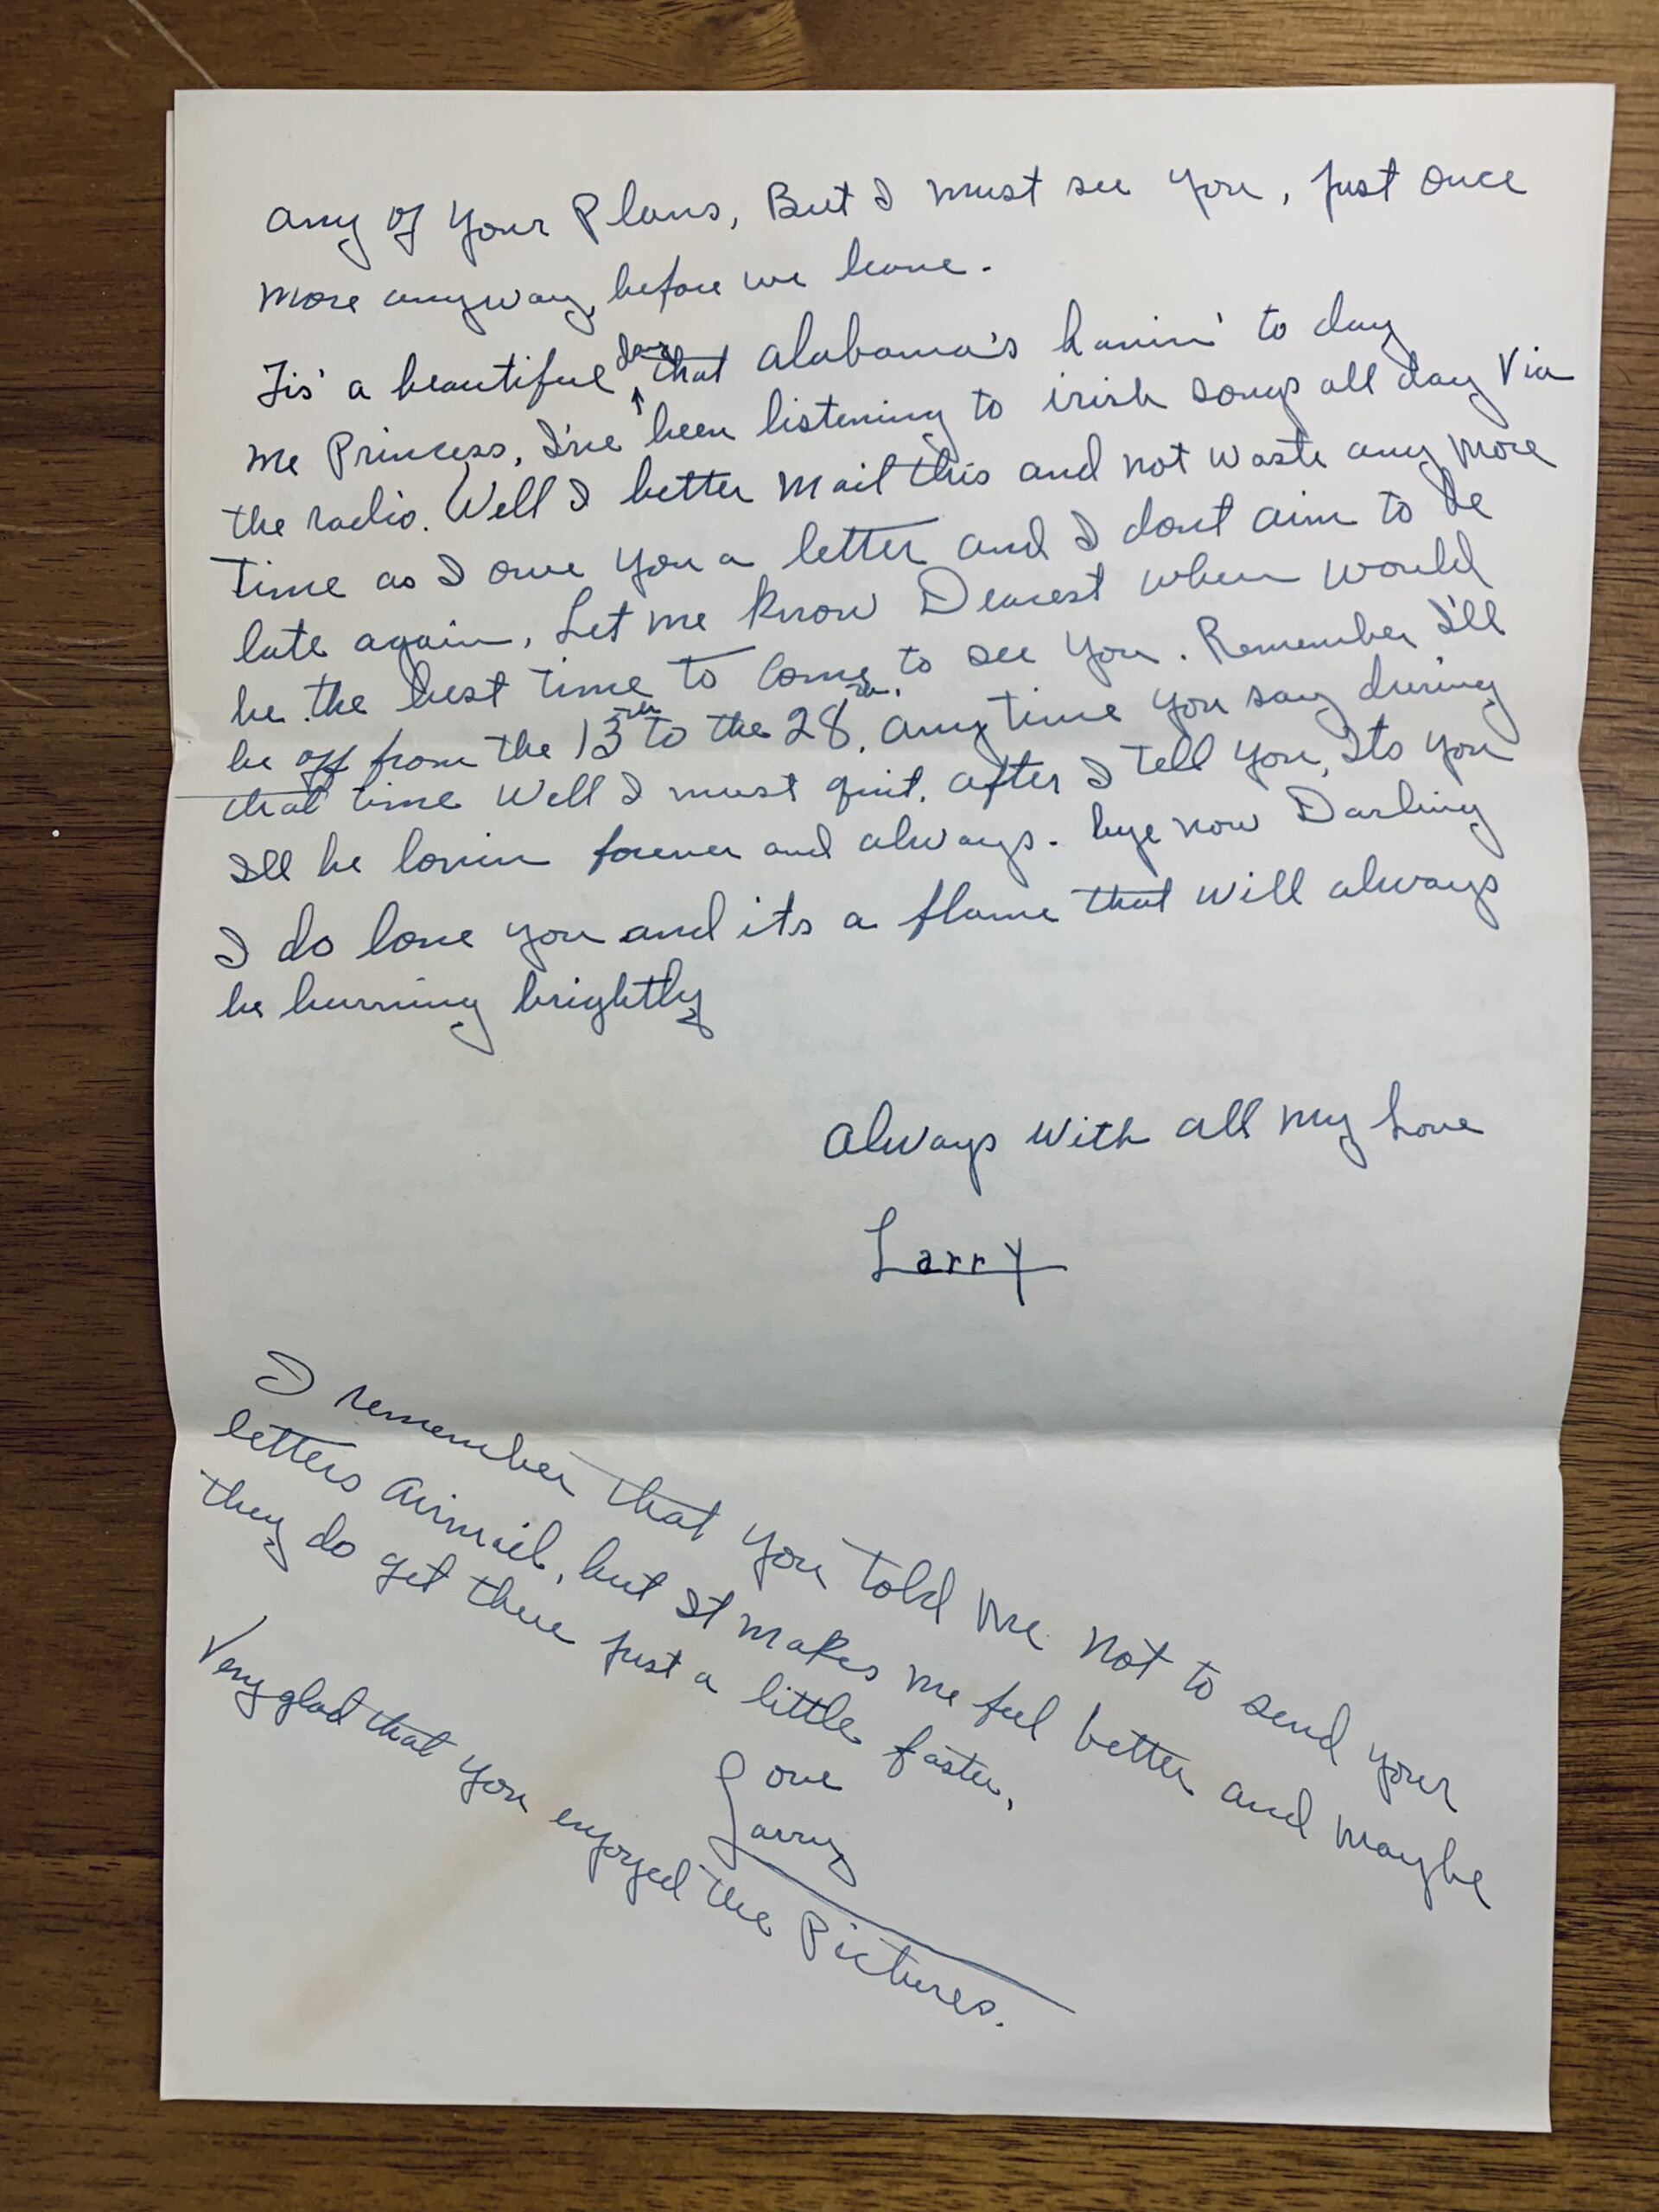 any of your Plans, But I must see you, just once
more anyway, before we leave.
Tis' a beautiful day that alabama's havin' to day
me Princess, I've been listening to irish songs all day Via
the radio. Well I better mail this and not waste any more
time as I owe you a letter and I dont aim to be
late again, Let me know Dearest when would
be the best time to come to see you. Remember I'll
be off from the 13th to the 28th, anytime you say during
that time Well I must quit. after I tell you, Its you
Ill be lovin forever and always. bye now Darling
I do love you and its a flame that will always
be burning brightly
Always with all my Love
Larry
I remember that you told me not to send your
letters Airmail, but It makes me feel better and maybe
they do get there just a little faster,
Love
Larry
Very glad that you enjoyed the Pictures.